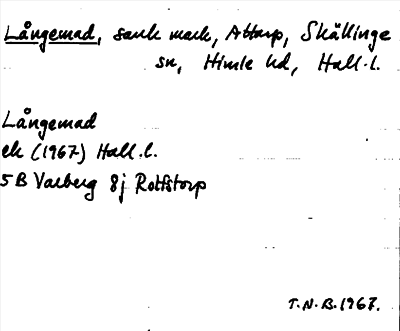 Långemad, sank mark, Attarp, Skällinge
sn, Himle hd, Hall. l.
Långemad
ek (1967) Hall. l.
5 B Varberg 8j Rolfstorp
T. N. B. 1967.